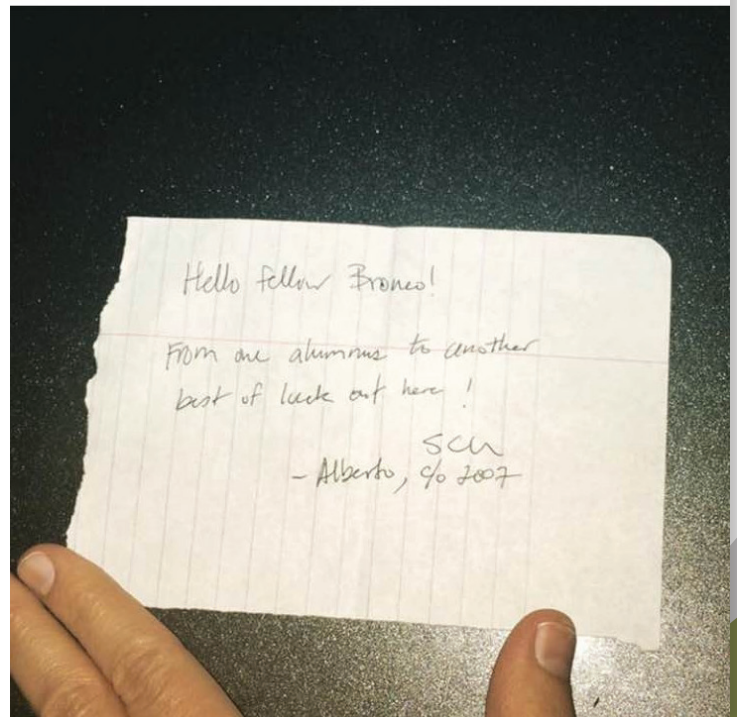 Hello fellow Bronco!
From one alumnus to another
best of luck out here!
SCU
- Alberto, c/o 2007